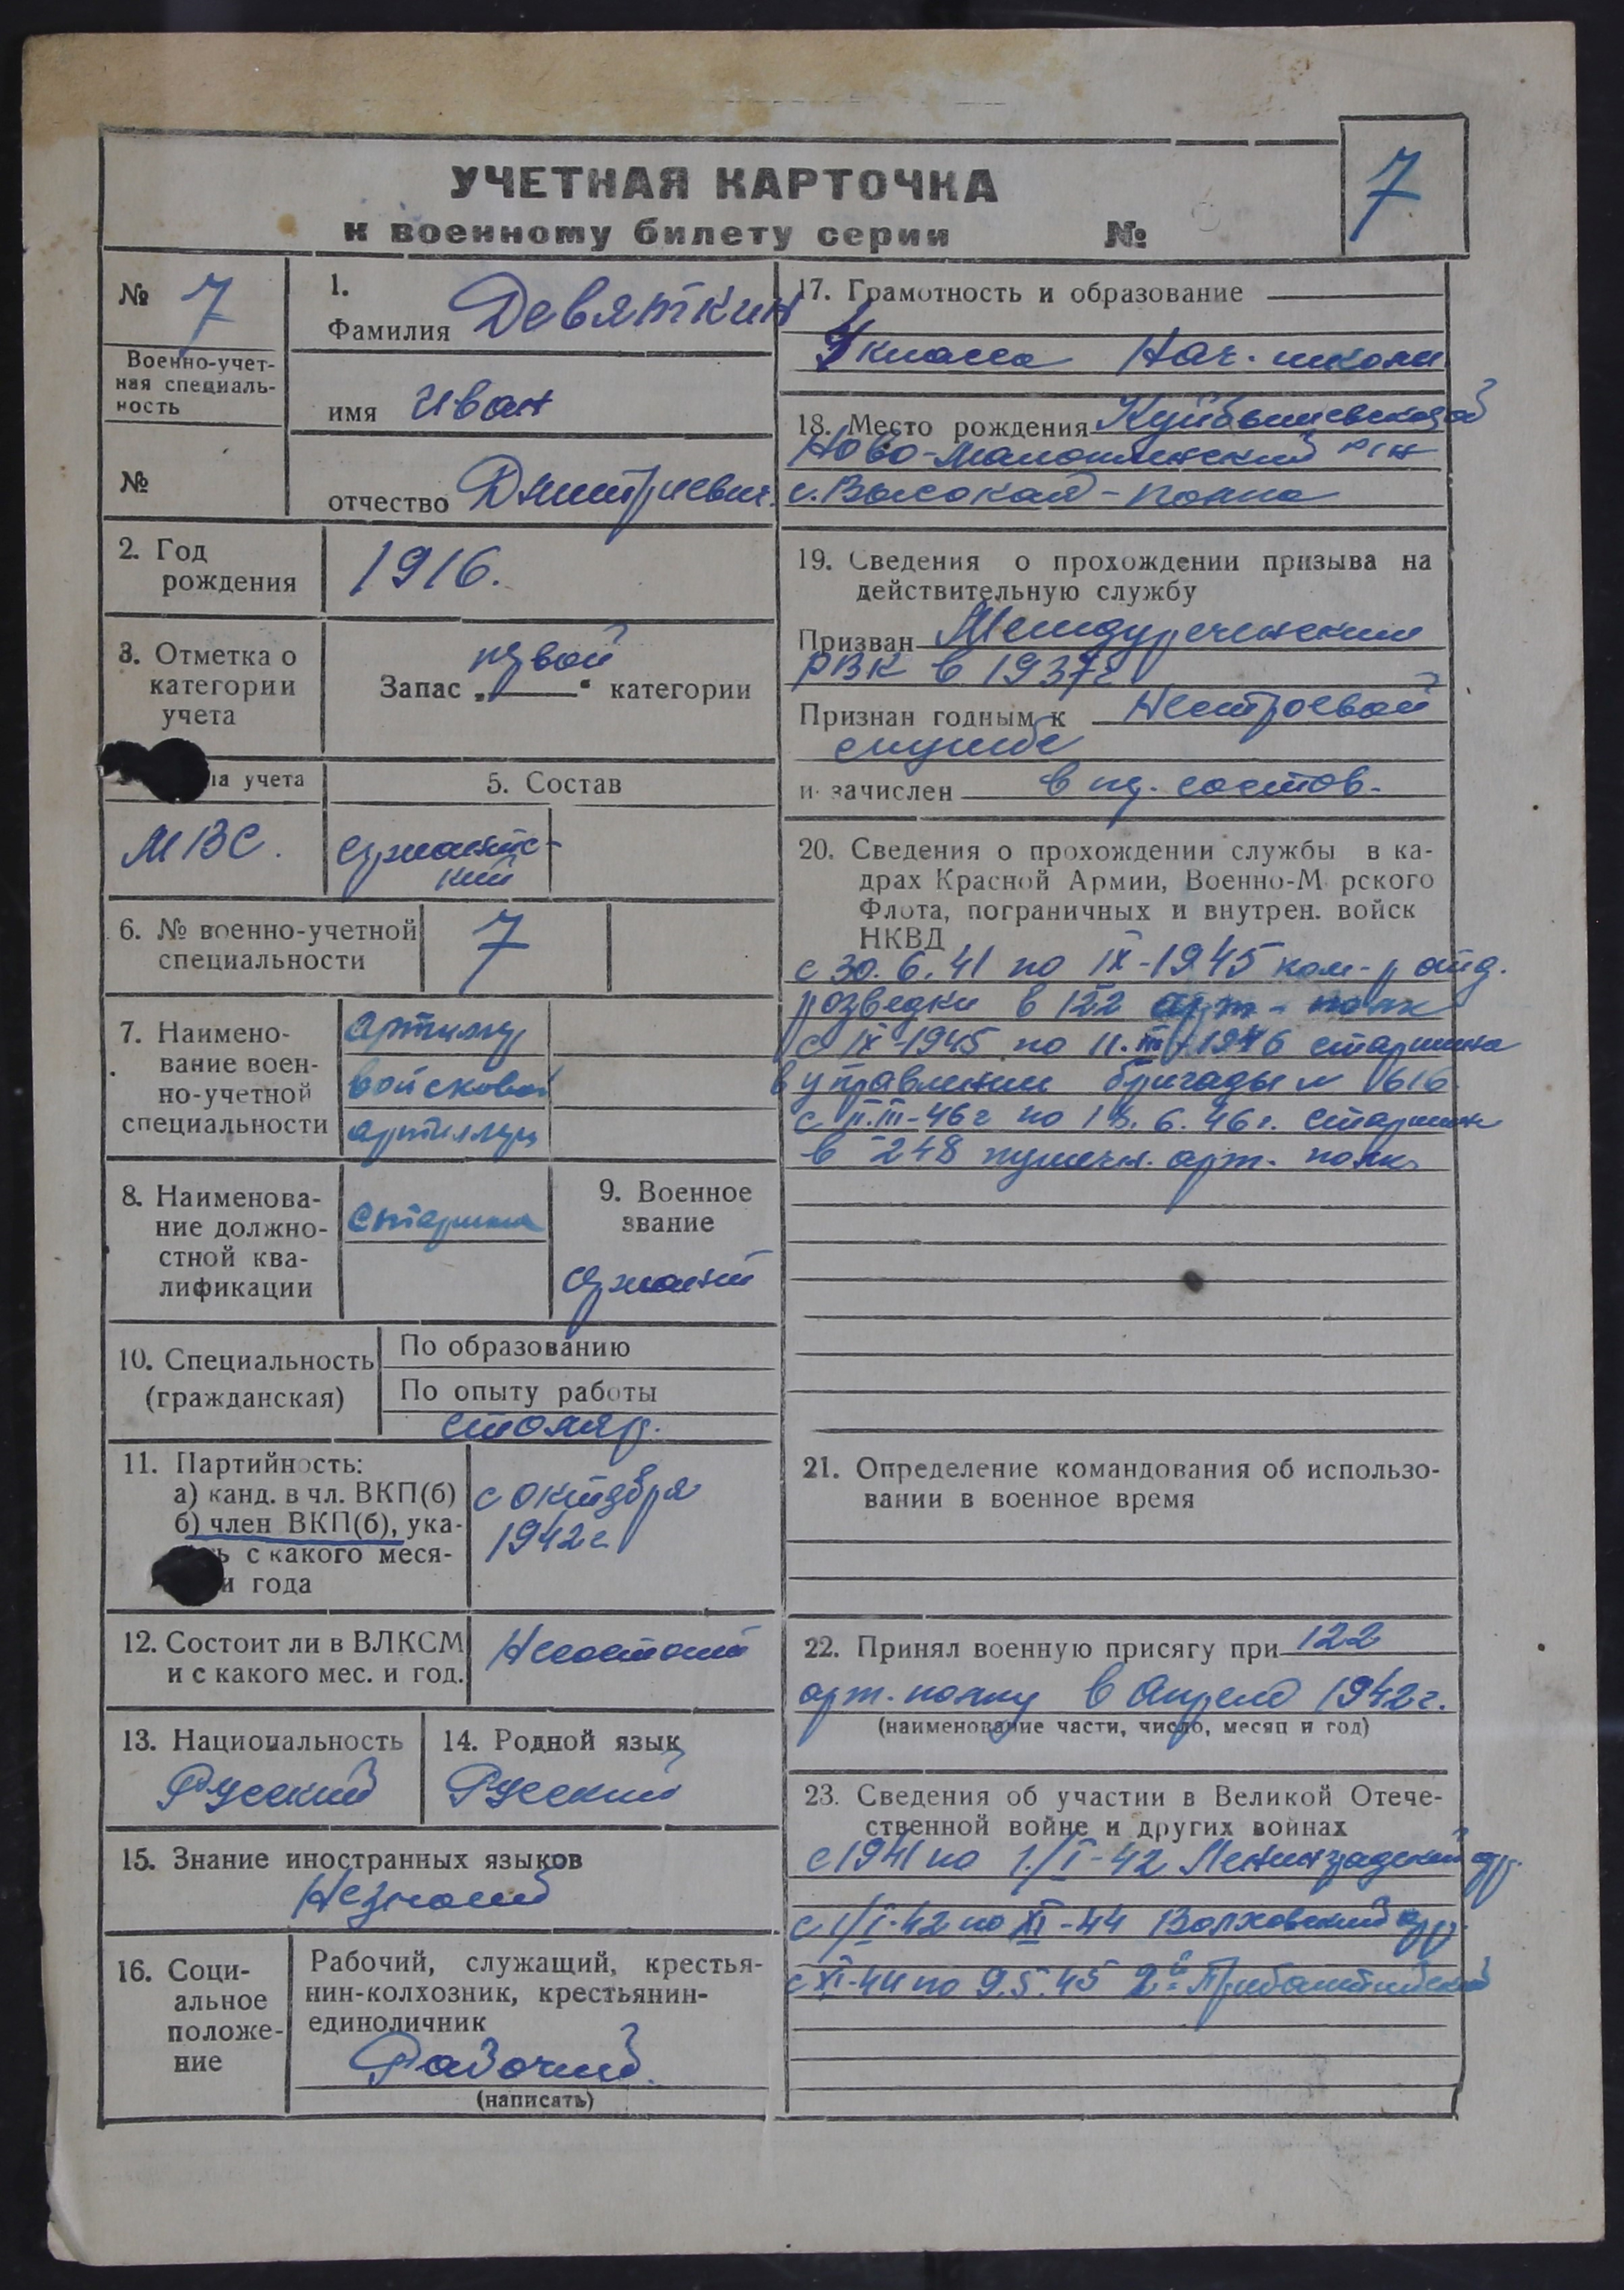 7
УЧЕТНАЯ КАРТОЧКА
к военному билету серии №
№ 7
Военно-учет-
ная специаль-
ность
№
1.
Фамилия Девяткин
имя Иван
отчество Дмитриевич.
2. Год
рождения
1916.
3. Отметка о
категории
учета
первой
Запас „ “ категории
па учета
МВС.
5. Состав
сержантс-
кий
6. № военно-учетной
специальности
7
7. Наимено-
вание воен-
но-учетной
специальности
войсковой
8. Наименова-
ние должно-
стной ква-
лификации
старшина
9. Военное
звание
сержант
10. Специальность
(гражданская)
По образованию
По опыту работы
столяр.
11. Партийность:
а) канд. в чл. ВКП(б)
б) член ВКП(б), ука-
ь с какого меся-
и года
с октября
1942г.
12. Состоит ли в ВЛКСМ
и с какого мес. и год.
Несостоит
13. Национальность
Русский
14. Родной язык
Русский
15. Знание иностранных языков
Незнает
16. Соци-
альное
положе-
ние
Рабочий, служащий, крестья-
нин-колхозник, крестьянин-
единоличник
Рабочий.
(написать)
17. Грамотность и образование
4 класса Нач. школы
18. Место рождения Куйбышевской
Ново-Малыклинский р/н
с. Высокая-поляна
19. Сведения о прохождении призыва на
действительную службу
Призван Междуреченским
РВК в 1937г
Признан годным к Нестроевой
службе
и зачислен в ряд. состав.
20. Сведения о прохождении службы в ка-
драх Красной Армии, Военно-М рского
Флота, пограничных и внутрен. войск
НКВД
с 30.6.41 по IX-1945 ком-р отд.
розведки в 122 арт-полк
с IX-1945 по 11.III-1946 старшина
в управлении бригады № 616
с 11.III-46г по 18.6.46г. старшин
в 248 пушечн. арт. полк.
21. Определение командования об использо-
вании в военное время
22. Принял военную присягу при 122
арт. полку в Апреле 1942г.
(наименование части, число, месяц и год)
23. Сведения об участии в Великой Отече-
ственной войне и других войнах
с 1941 по 1/I-42 Ленинградский фр.
с 1/I-42 по XI-44 Волховский фр.
с XI-44 по 9.5.45 2й Прибалтийский